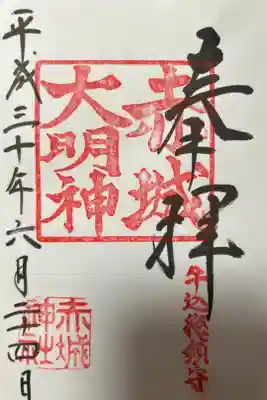 奉拝
赤城
大明神
牛込総鎮守
赤城
神社
平成三十年六月二十四日